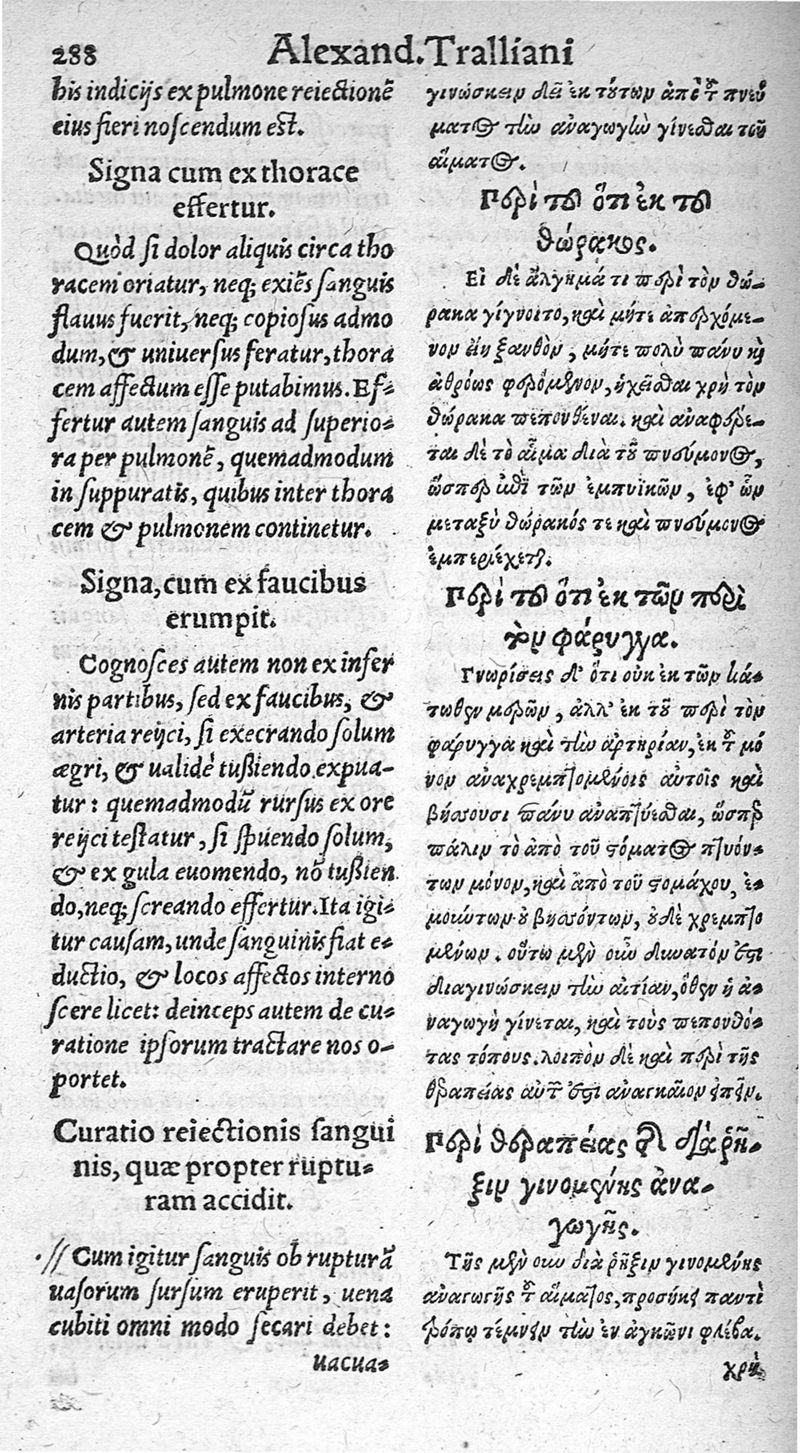 288
Alexand. Tralliani
bis indicijs ex pulmone reiectionē
eius fieri noscendum est.
Signa cum ex thorace
effertur.
Quòd si dolor aliquis circa tho
racem oriatur, neq; exiēs sanguis
flauus fuerit, neq; copiosus admo
dum, & uniuersus feratur, thora
cem affectum esse putabimus. Ef-
fertur autem sanguis ad superio-
ra per pulmonē, quemadmodum
in suppuratis, quibus inter thora
cem & pulmonem continetur.
Signa, cum ex faucibus
erumpit.
Cognosces autem non ex infer
nis partibus, sed ex faucibus, &
arteria reijci, si execrando solum
ægri, & ualidè tussiendo expua-
tur: quemadmodū rursus ex ore
reijci testatur, si spuendo solum,
& ex gula euomendo, nō tussien
do, neq; screando effertur. Ita igi-
tur causam, unde sanguinis fiat e-
ductio, & locos affectos interno
scere licet: deinceps autem de cu-
ratione ipsorum tractare nos o-
portet.
Curatio reiectionis sangui
nis, quæ propter ruptu-
ram accidit.
Cum igitur sanguis ob rupturā
uasorum sursum eruperit, uena
cubiti omni modo secari debet:
uacua-
γινώσκειν δεῖ ἐκ τούτων ἀπὸ τοῦ πνεύ
ματος τὴν ἀναγωγὴν γίνεσθαι τοῦ
αἵματος.
Περὶ τοῦ ὅτι ἐκ τοῦ
θώρακος.
Εἰ δὲ ἄλγημά τι περὶ τὸν θώ-
ρακα γίγνοιτο, καὶ μήτε ἀπερχόμε-
νον εἴη ξανθὸν, μήτε πολὺ πάνυ καὶ
ἀθρόως φερόμενον, ἡγεῖσθαι χρὴ τὸν
θώρακα πεπονθέναι. καὶ ἀναφέρε-
ται δὲ τὸ αἷμα διὰ τοῦ πνεύμονος,
ὥσπερ ἐπὶ τῶν ἐμπυικῶν, ἐφ' ὧν
μεταξὺ θώρακός τε καὶ πνεύμονος
ἐμπεριέχεται.
Περὶ τοῦ ὅτι ἐκ τῶν περὶ
τὸν φάρυγγα.
Γνωρίσεις δ' ὅτι οὐκ ἐκ τῶν κά-
τωθεν μερῶν, ἀλλ' ἐκ τοῦ περὶ τὸν
φάρυγγα καὶ τὴν ἀρτηρίαν, ἐκ τοῦ μό
νον ἀναχρεμπτομένοις αὐτοῖς καὶ
βήσσουσι πάνυ ἀναπτύεσθαι, ὥσπερ
πάλιν τὸ ἀπὸ τοῦ στόματος πτυόν-
των μόνον, καὶ ἀπὸ τοῦ στομάχου, ἐ-
μούντων οὐ βησσόντων, οὐδὲ χρεμπτο
μένων. οὕτω μὲν οὖν δυνατόν ἐστι
διαγινώσκειν τὴν αἰτίαν, ὅθεν ἡ ἀ-
ναγωγὴ γίνεται, καὶ τοὺς πεπονθό-
τας τόπους. λοιπὸν δὲ καὶ περὶ τῆς
θεραπείας αὐτῶν ἐστι ἀναγκαῖον εἰπεῖν.
Περὶ θεραπείας τῆς διὰ ῥῆ-
ξιν γινομένης ἀνα-
γωγῆς.
Τῆς μὲν οὖν διὰ ῥῆξιν γινομένης
ἀναγωγῆς τοῦ αἵματος, προσήκει παντὶ
τρόπῳ τέμνειν τὴν ἐν ἀγκῶνι φλέβα.
χρὴ